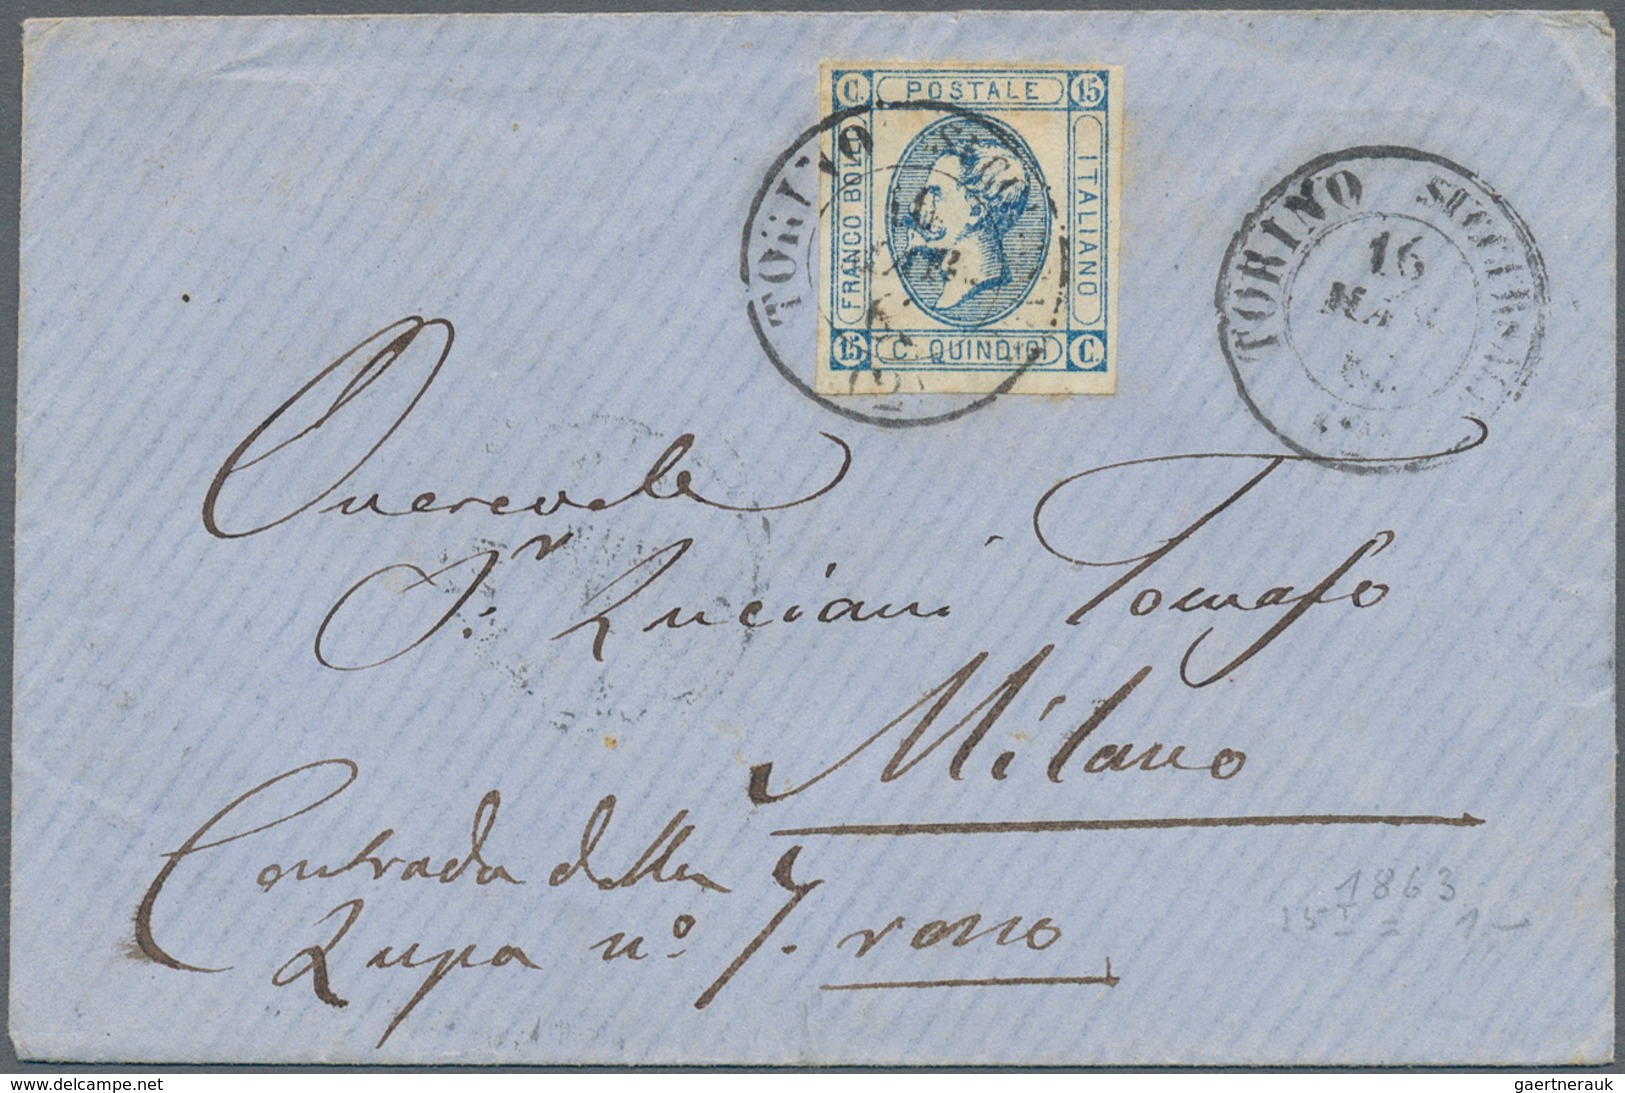 C. POSTALE 15
FRANCO BOLLO
ITALIANO
15 C. QUINDICI C.
TORINO
16
TORINO SUCCURSALE
16
MAR
Sr. Luciani Tomaso
Milano
Contrada della
Lupa no. 7. rosso
1863
15
1-
www.delcampe.net
gaertnerauk